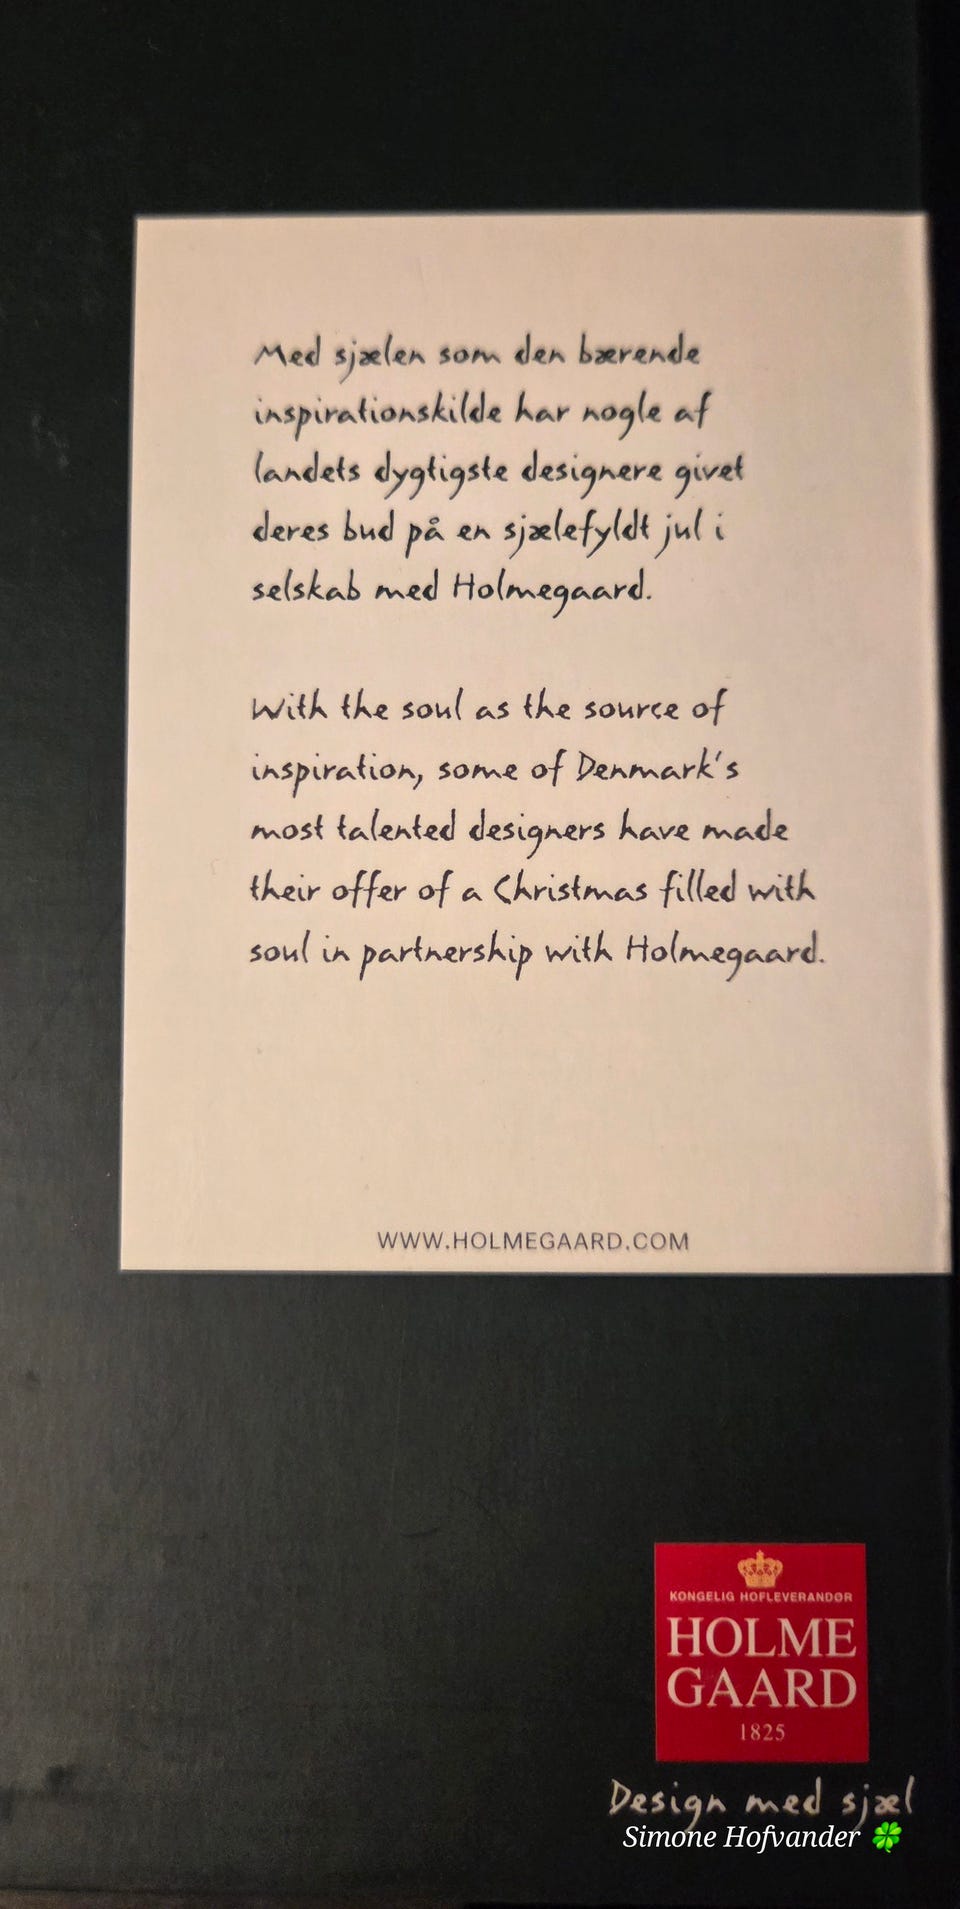 Med sjælen som den bærende
inspirationskilde har nogle af
landets dygtigste designere givet
deres bud på en sjælefyldt jul i
selskab med Holmegaard.
With the soul as the source of
inspiration, some of Denmark's
most talented designers have made
their offer of a Christmas filled with
soul in partnership with Holmegaard.
WWW.HOLMEGAARD.COM
KONGELIG HOFLEVERANDØR
HOLME
GAARD
1825
Design med sjæl
Simone Hofvander 🍀